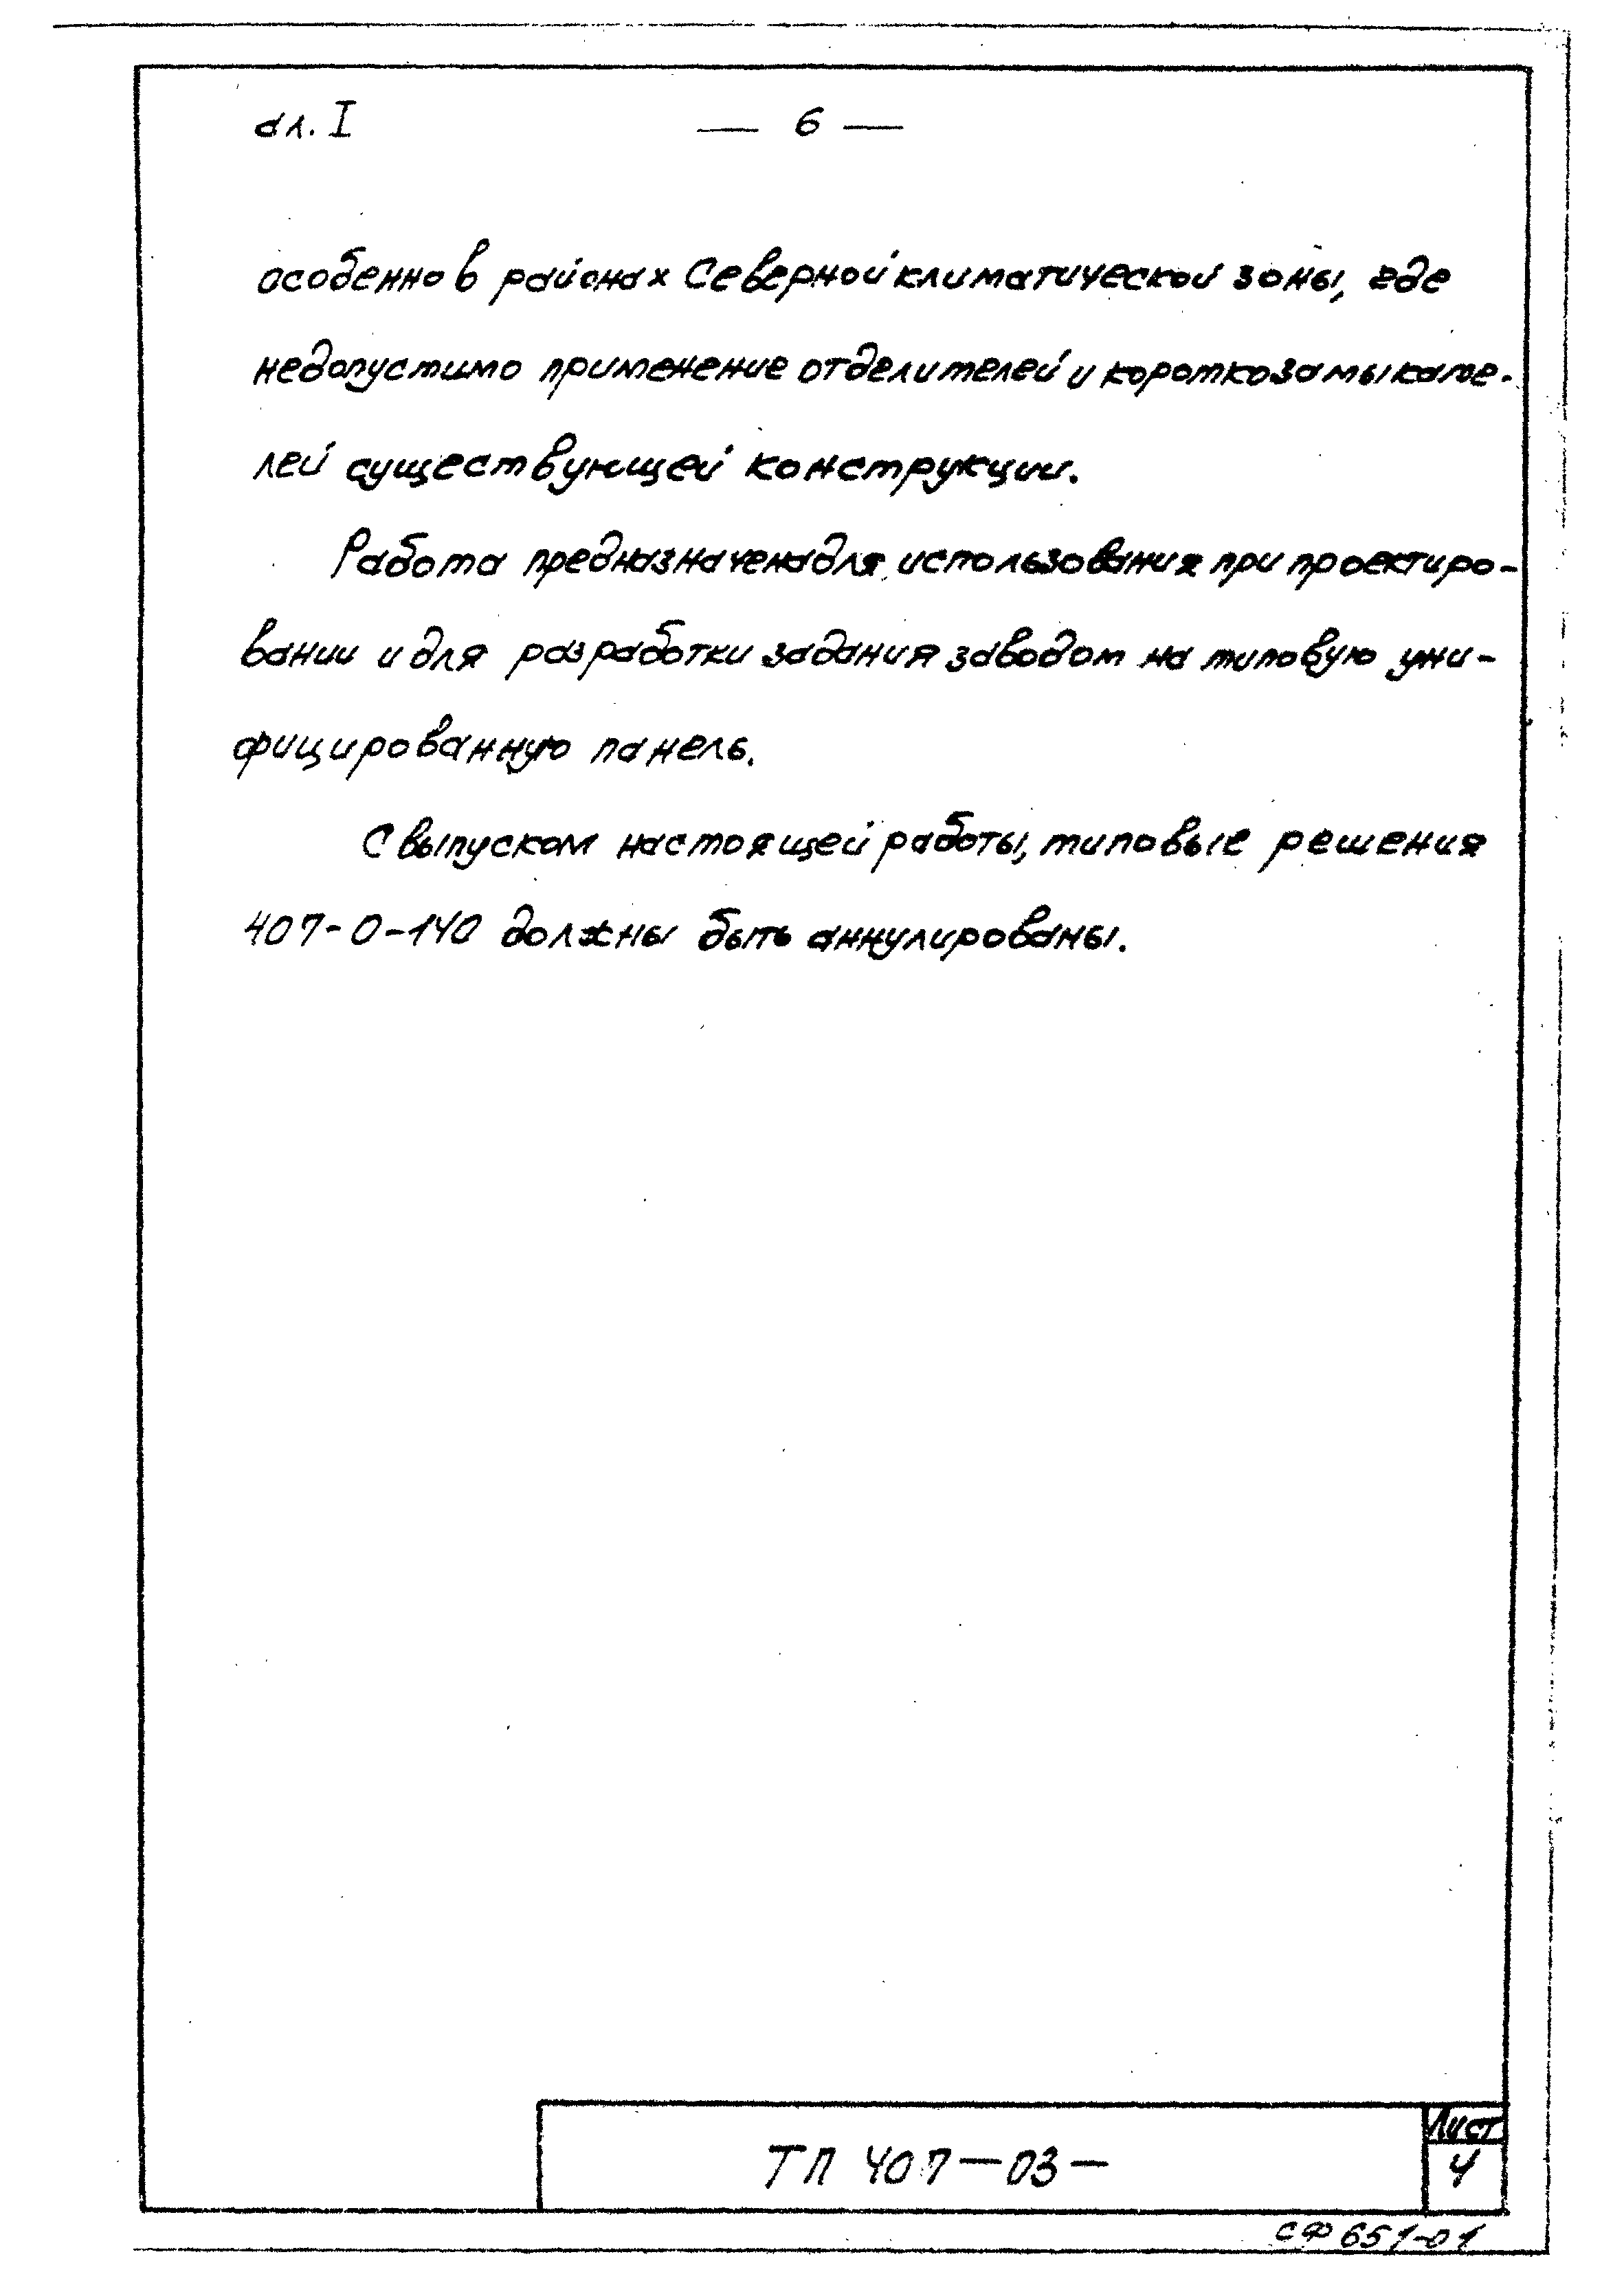 ал. I — 6 —
особенно в районах Северной климатической зоны, где
недопустимо применение отделителей и короткозамыкате-
лей существующей конструкции.
Работа предназначена для использования при проектиро-
вании и для разработки задания заводам на типовую уни-
фицированную панель.
С выпуском настоящей работы, типовые решения
407-0-140 должны быть аннулированы.
ТП 407-03-
Лист
4
СФ 651-01